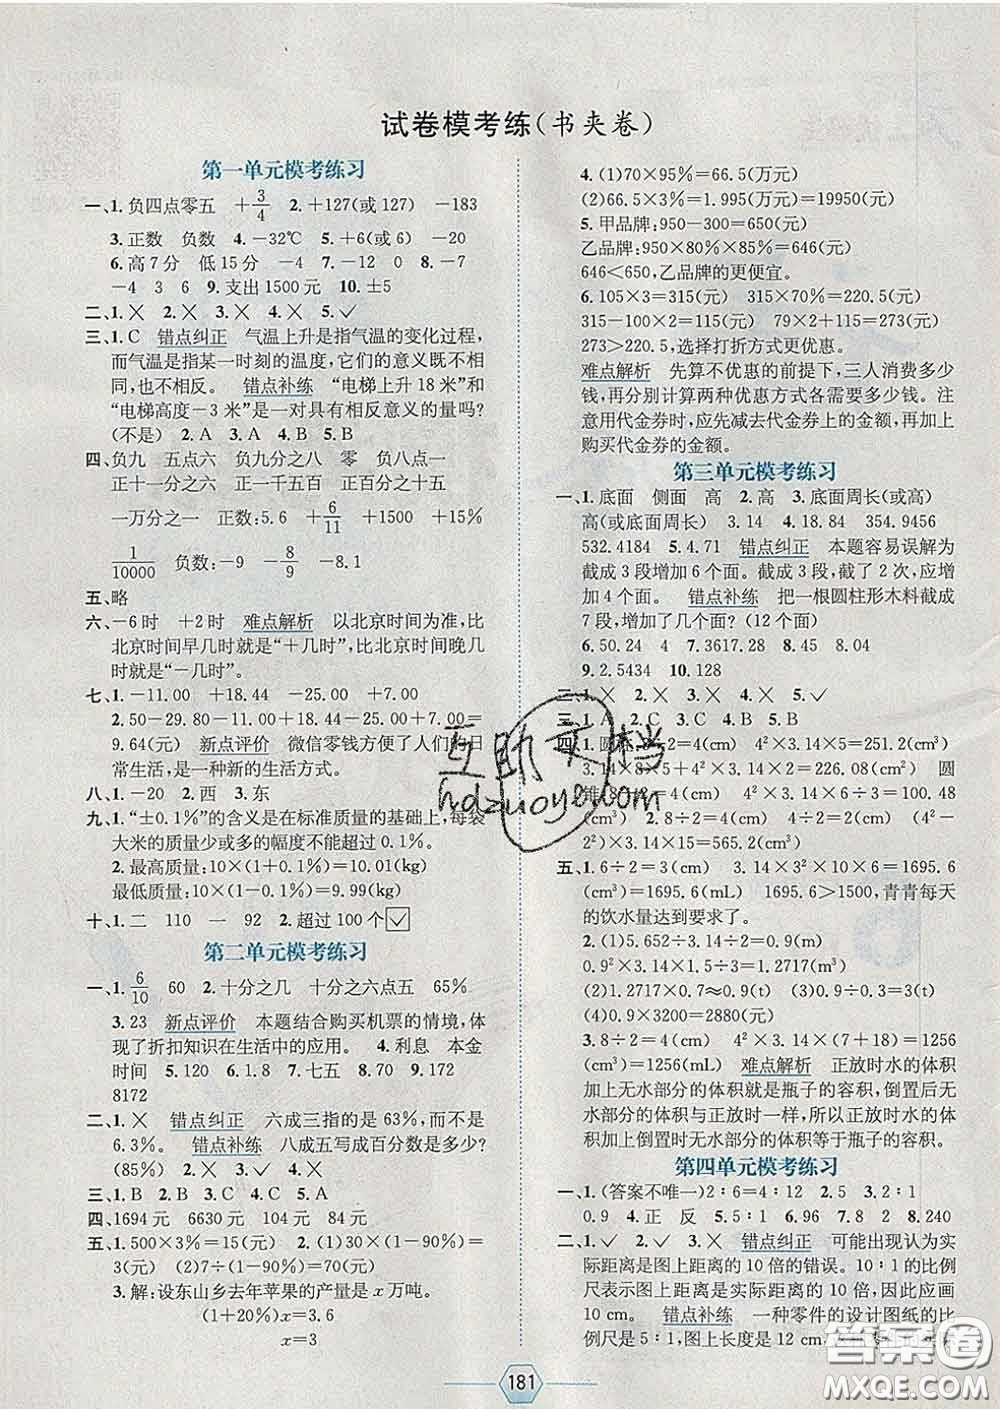 试卷模考练(书夹卷)
第一单元模考练习
一、1.负四点零五 +3/4 2.+127(或127) -183
3.正数 负数 4.-32℃ 5.+6(或6) -20
6.高7分 低15分 -4 7.-12 0 8.-7
-4 3 6 9.支出1500元 10.±5
二、1.× 2.× 3.× 4.× 5.✓
三、1.C 错点纠正 气温上升是指气温的变化过程,
而气温是指某一时刻的温度,它们的意义既不相
同,也不相反。 错点补练 “电梯上升18米”和
“电梯高度-3米”是一对具有相反意义的量吗?
(不是) 2.A 3.A 4.B 5.B
四、负九 五点六 负九分之八 零 负八点一
正十一分之六 正一千五百 正百分之十五
一万分之一 正数:5.6 +6/11 +1500 +15%
1/10000 负数:-9 -8/9 -8.1
五、略
六、-6时 +2时 难点解析 以北京时间为准,比
北京时间早几时就是“+几时”,比北京时间晚几
时就是“-几时”。
七、1.-11.00 +18.44 -25.00 +7.00
2.50-29.80-11.00+18.44-25.00+7.00=
9.64(元) 新点评价 微信零钱方便了人们的日
常生活,是一种新的生活方式。
八、1.-20 2.西 3.东
九、1.“±0.1%”的含义是在标准质量的基础上,每袋
大米的质量少或多的部分不能超过0.1%。
2.最高质量:10×(1+0.1%)=10.01(kg)
最低质量:10×(1-0.1%)=9.99(kg)
十、1.二 110 一 92 2.超过100个 ✓
第二单元模考练习
一、1.6/10 60 2.十分之几 十分之六点五 65%
3.23 新点评价 本题结合购买机票的情境,体
现了折扣知识在生活中的应用。 4.利息 本金
时间 5.120 6.1.8 7.七五 8.70 9.172
8172
二、1.× 错点纠正 六成三指的是63%,而不是
6.3%。 错点补练 八成五写成百分数是多少?
(85%) 2.× 3.✓ 4.× 5.×
三、1.C 2.B 3.B 4.C 5.A
四、1694元 6630元 104元 84元
五、1.500×3%=15(元) 2.(1)30×(1-90%)=
3(元) (2)7÷(1-90%)=70(元)
3.解:设东山乡去年苹果的产量是x万吨。
(1+20%)x=3.6
x=3
4.(1)70×95%=66.5(万元)
(2)66.5×3%=1.995(万元)=19950(元)
5.甲品牌:950-300=650(元)
乙品牌:950×80%×85%=646(元)
646<650,乙品牌的更便宜。
6.105×3=315(元) 315×70%=220.5(元)
315-100×2=115(元) 79×2+115=273(元)
273>220.5,选择打折方式更优惠。
难点解析 先算不优惠的前提下,三人消费多少
钱,再分别计算两种优惠方式各需要多少钱。注
意用代金券时,应先减去代金券上的金额,再加上
购买代金券的金额。
第三单元模考练习
一、1.底面 侧面 高 2.高 3.底面周长(或高)
高(或底面周长) 3.14 4.18.84 354.9456
532.4184 5.4.71 错点纠正 本题容易误解为
截成3段增加6个面。截成3段,截了2次,应增
加4个面。 错点补练 把一根圆柱形木料截成
7段,增加了几个面?(12个面)
6.50.24 4 7.3617.28 8.45 8.04
9.2.5434 10.128
二、1.× 2.× 3.× 4.× 5.✓
三、1.A 2.C 3.C 4.B 5.B
四、1.圆柱:8÷2=4(cm) 4²×3.14×5=251.2(cm³)
3.14×8×5+4²×3.14×2=226.08(cm²) 圆
锥:8÷2=4(cm) 4²×3.14×6÷3=100.48
(cm³) 2.8÷2=4(cm) 4÷2=2(cm) (4²-
2²)×3.14×15=565.2(cm³)
五、1.6÷2=3(cm) 3.14×3²×10×6=1695.6
(cm³)=1695.6(mL) 1695.6>1500,青青每天
的饮水量达到要求了。
2.(1)5.652÷3.14÷2=0.9(m)
0.9²×3.14×1.5÷3=1.2717(m³)
(2)1.2717×0.7≈0.9(t) (3)0.9÷0.9=1(t)
(4)0.9×3200=2880(元)
3.8÷2=4(cm) 4²×3.14×(7+18)=
1256(cm³)=1256(mL) 难点解析 正放时水的体积
加上无水部分的体积就是瓶子的容积,倒置后无水
部分的体积与正放时一样,所以正放时水的体
积加上倒置时无水部分的体积等于瓶子的容积。
第四单元模考练习
一、1.(答案不唯一)2∶6=4∶12 2.5 3.2∶1
0.9 4.正 反 5.5∶1 6.96 7.8 2 8.240
二、1.✓ 2.✓ 3.× 错点纠正 可能出现认为实
际距离是图上距离的10倍的错误。10∶1的比例
尺表示图上距离是实际距离的10倍,因此应画
10 cm。 错点补练 一种零件的设计图纸的比
例尺是5∶1,图上长度是12 cm,
181
互助文档
hdzuoye.com
答案圈
MXQE.COM